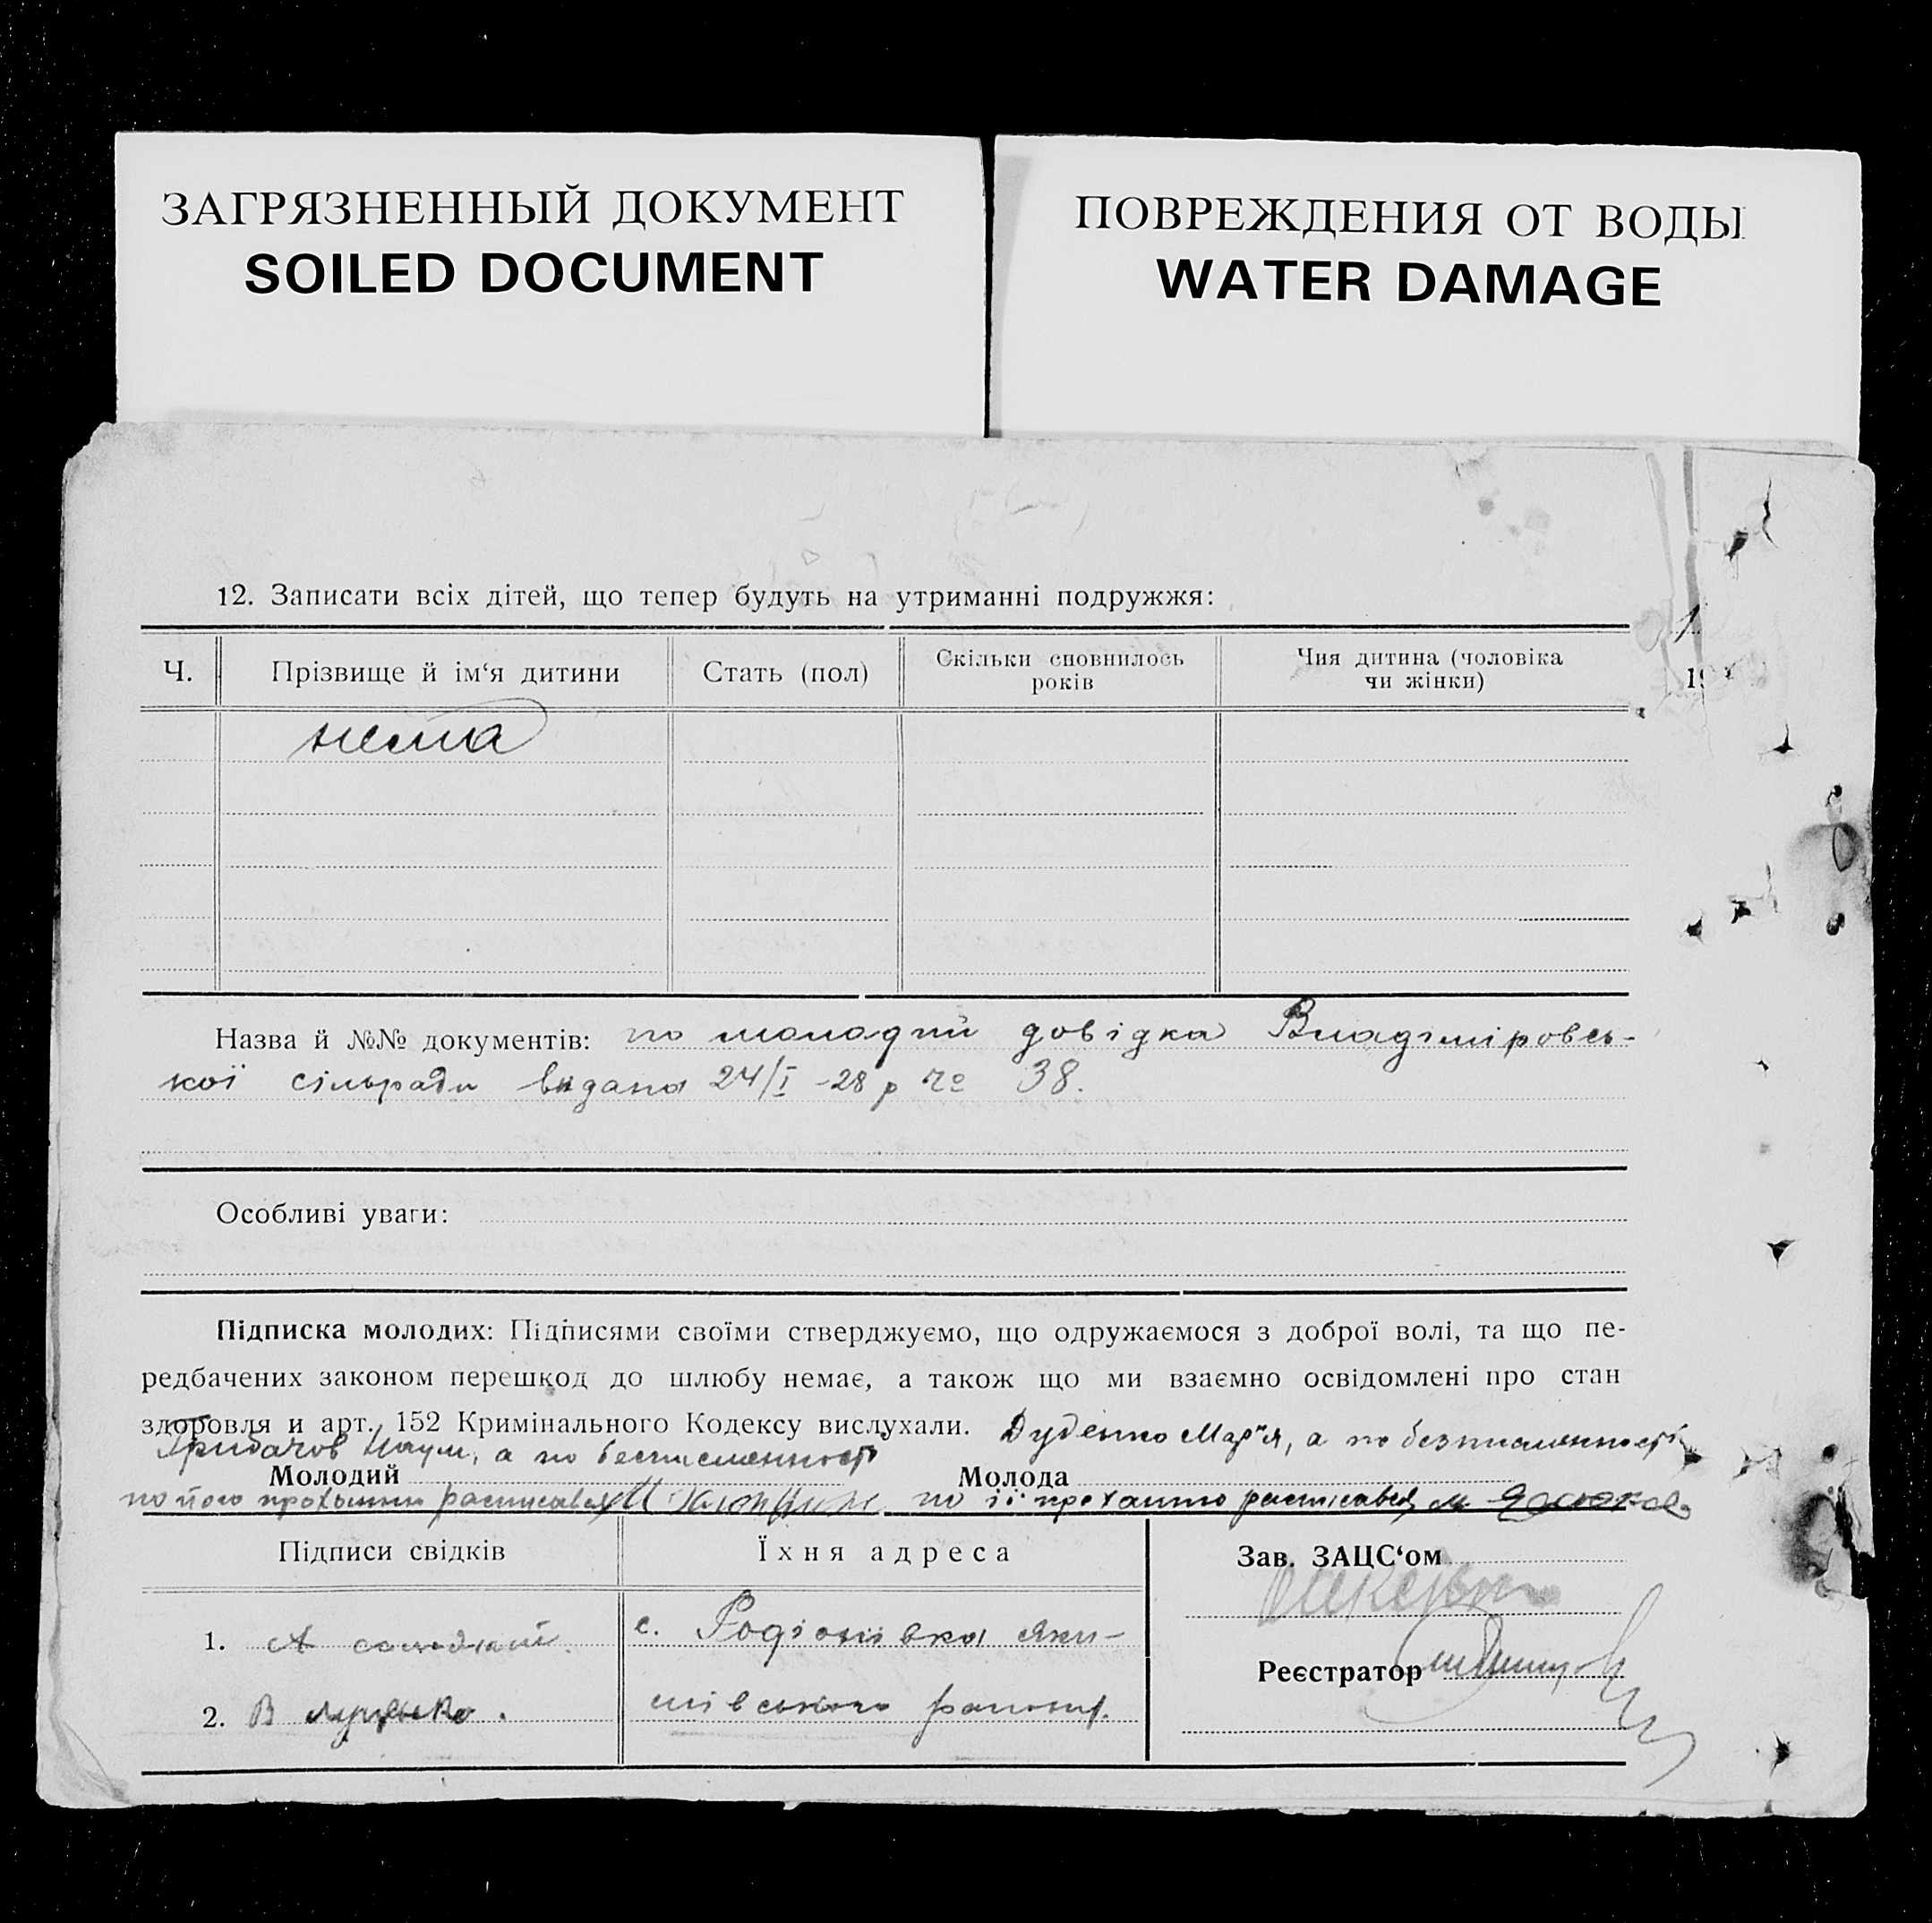 ЗАГРЯЗНЕННЫЙ ДОКУМЕНТ
SOILED DOCUMENT
ПОВРЕЖДЕНИЯ ОТ ВОДЫ
WATER DAMAGE
12. Записати всіх дітей, що тепер будуть на утриманні подружжя:
Ч.
Прізвище й ім‘я дитини
Стать (пол)
Скільки сповнилось
років
Чия дитина (чоловіка
чи жінки)
19
нема
Назва й №№ документів: по молодий довідка Владіміровсь-
кої сільради видана 24/I -28 р № 38.
Особливі уваги:
Підписка молодих: Підписями своїми стверджуємо, що одружаємося з доброї волі, та що пе-
редбачених законом перешкод до шлюбу немає, а також що ми взаємно освідомлені про стан
здоровля и арт. 152 Кримінального Кодексу вислухали.
Наум, а по
Молодий
по його росписався
Дуденко Мар'я, а по безписьменності
Молода
по її проханню росписався
Підписи свідків
Їхня адреса
1. А
2. В Луценко.
с. Родіонівка Яки-
мівського району.
Зав. ЗАЦС‘ом
Реєстратор